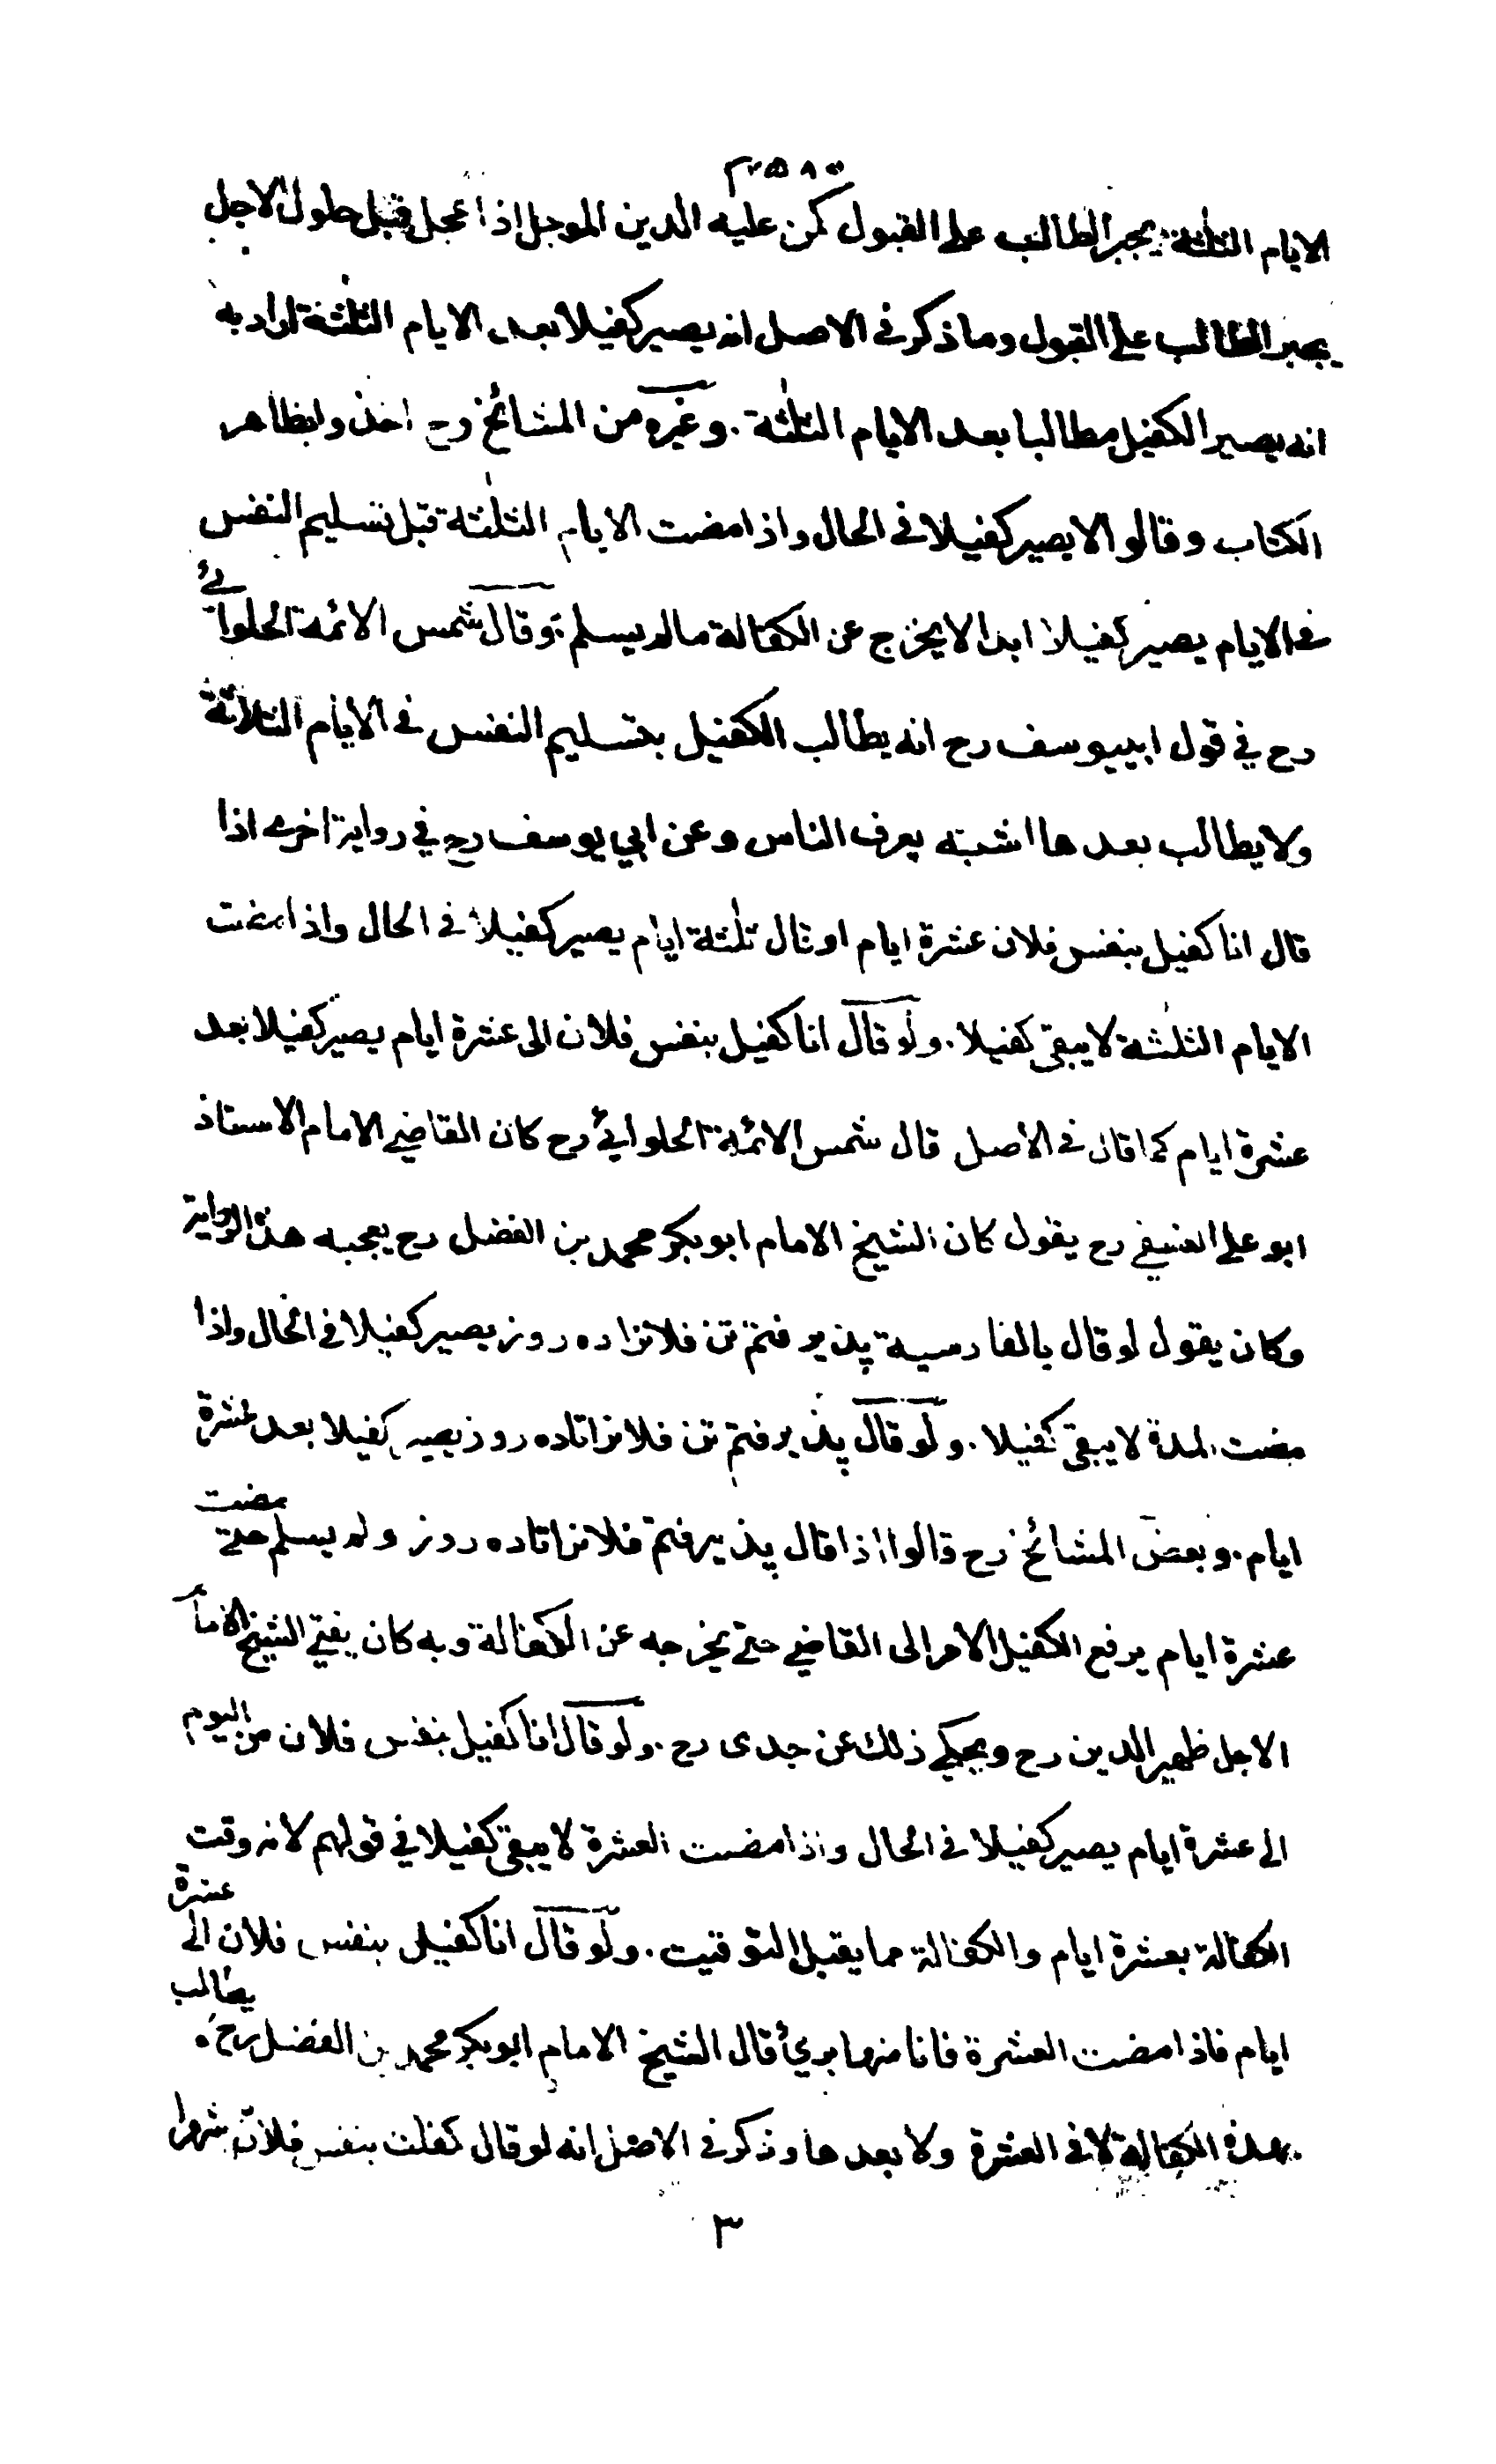 الايام الثلثة يجبر الطالب على القبول كمن عليه الدين الموجل اذا عجل قبل حلول الاجل
يجبر الطالب على القبول وما ذكر في الاصل انه يصير كفيلا بعد الايام الثلثة اراد به
انه يصير الكفيل مطالبا بعد الايام الثلثة . وغيره من المشائخ رح اخذوا بظاهر
الكتاب وقالوا لا يصير كفيلا في الحال واذا مضت الايام الثلثة قبل تسليم النفس
في الايام يصير كفيلا ابدا لا يخرج عن الكفالة ما لم يسلم . وقال شمس الائمة الحلوائي
رح في قول ابي يوسف رح انه يطالب الكفيل بتسليم النفس في الايام الثلاثة
ولا يطالب بعدها اشبه بعرف الناس وعن ابي يوسف رح في رواية اخرى اذا
قال انا كفيل بنفس فلان عشرة ايام او قال ثلثة ايام يصير كفيلا في الحال واذا مضت
الايام الثلثة لا يبقى كفيلا . ولو قال انا كفيل بنفس فلان الى عشرة ايام يصير كفيلا بعد
عشرة ايام كما قال في الاصل قال شمس الائمة الحلوائي رح كان القاضي الامام الاستاذ
ابو علي النسفي رح يقول كان الشيخ الامام ابو بكر محمد بن الفضل رح يعجبه هذه الرواية
وكان يقول لو قال بالفارسية پذيرفتم تن فلانرا ده روز يصير كفيلا في الحال واذا
مضت المدة لا يبقى كفيلا . ولو قال پذيرفتم تن فلانرا تا ده روز يصير كفيلا بعد عشرة
ايام . وبعض المشائخ رح قالوا اذا قال پذيرفتم فلانرا تا ده روز ولم يسلم حتى مضت
عشرة ايام يرفع الكفيل الامر الى القاضي حتى يخرجه عن الكفالة وبه كان يفتي الشيخ الامام
الاجل ظهير الدين رح ويحكي ذلك عن جدى رح . ولو قال انا كفيل بنفس فلان من اليوم
الى عشرة ايام يصير كفيلا في الحال واذا مضت العشرة لا يبقى كفيلا في قولهم لانه وقت
الكفالة بعشرة ايام والكفالة مما يقبل التوقيت . ولو قال انا كفيل بنفس فلان الى عشرة
ايام فاذا مضت العشرة فانا منها بريء قال الشيخ الامام ابو بكر محمد بن الفضل رح لا يطالب
بهذه الكفالة لا في العشرة ولا بعدها وذكر في الاصل انه لو قال كفلت بنفس فلان شهرا
٣